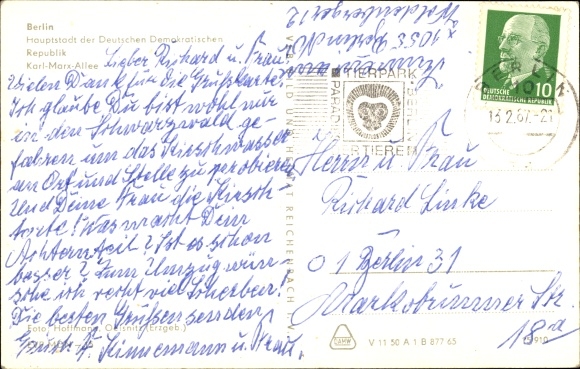 Berlin
Hauptstadt der Deutschen Demokratischen
Republik
Karl-Marx-Allee
Lieber Richard u. Frau
Vielen Dank für die Grüßkarten
Ich glaube Du bist wohl nur
in den Schwarzwald ge-
fahren um das Kirschwasser
an Ort und Stelle zu probieren
Und Deine Frau die Kirsch-
torte! Was macht Dein
Ist es schon
besser? Zum Umzug wün-
sche ich recht viel Scherben!
Die besten Grüße senden
Foto Hoffmann, Oelsnitz (Erzgeb.)
u. Frau
VEB BILD UND HEIMAT REICHENBACH I. V.
1055 Berlin
TIERPARK
BERLIN
TIEREN
BERLIN
13.2.67-21
DEUTSCHE
DEMOKRATISCHE REPUBLIK
10
Herrn u. Frau
Richard Linke
01 Berlin 31
Markobrunner Str.
18a
V 11 50 A 1 B 877 65